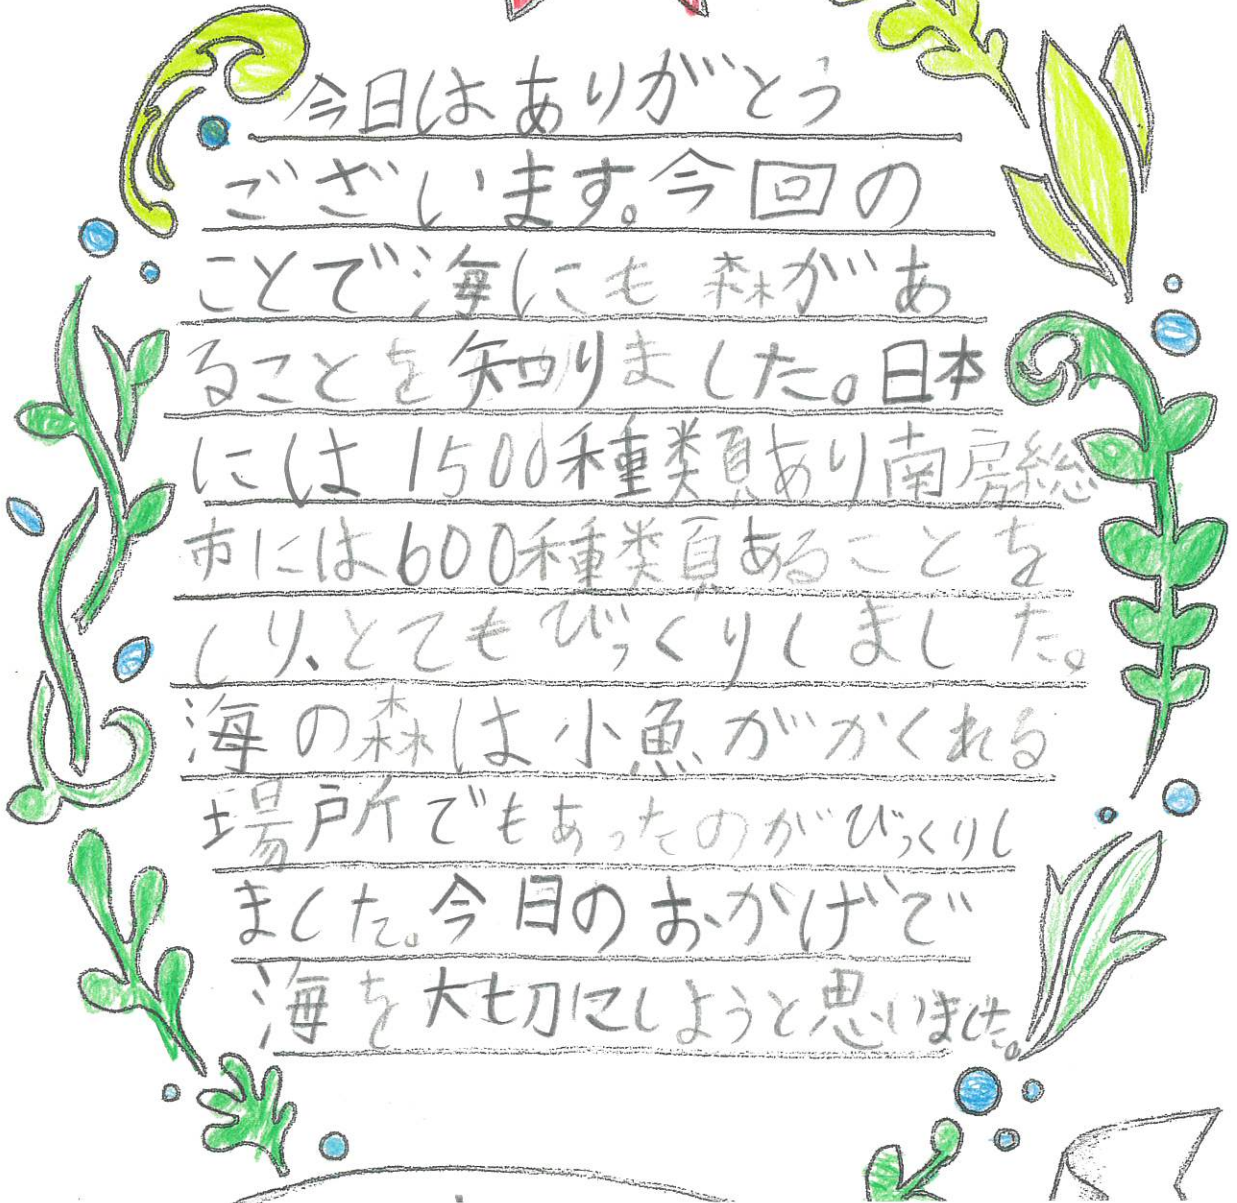 今日はありがとう
ございます。今回の
ことで海にも森があ
ることを知りました。日本
には1500種類あり南房総
市には600種類あることを
しり、とてもびっくりしました。
海の森は小魚がかくれる
場所でもあったのがびっくりし
ました。今日のおかげで
海を大切にしようと思いました。